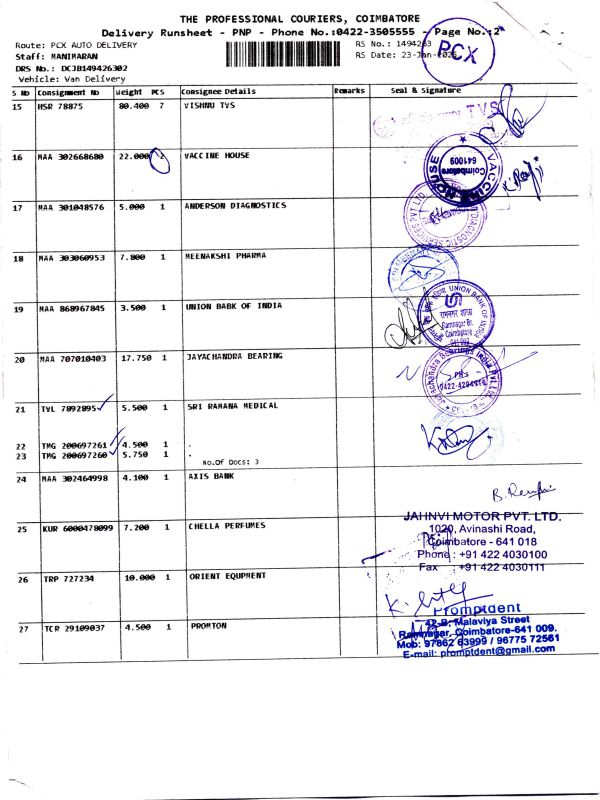 THE PROFESSIONAL COURIERS, COIMBATORE
Delivery Runsheet - PNP - Phone No.:0422-3505555 - Page No.:2
Route: PCX AUTO DELIVERY
Staff: MANIMARAN
DRS No.: DCJB149426302
Vehicle: Van Delivery
RS No.: 1494263
RS Date: 23-Jan-2025
PCX
S No Consignment No Weight PCS Consignee Details Remarks Seal & Signature
15 HSR 78875 80.400 7 VISHNU TVS
TVS
16 MAA 302668680 22.000 2 VACCINE HOUSE
VACCINE HOUSE
Coimbatore
641009
17 MAA 301048576 5.000 1 ANDERSON DIAGNOSTICS
DIAGNOSTIC SERVICES PVT LTD
18 MAA 303060953 7.800 1 MEENAKSHI PHARMA
19 MAA 868967845 3.500 1 UNION BABK OF INDIA
UNION BANK OF INDIA
रामनगर शाखा
Ramnagar Br.
Coimbatore
641 009
20 MAA 707010403 17.750 1 JAYACHANDRA BEARING
Jayachandra Bearings India Pvt Ltd
PH:
0422-4294914
21 TVL 7892895 5.500 1 SRI RAMANA MEDICAL
22 TMG 200697261 4.500 1 .
23 TMG 200697260 5.750 1 .
No.Of Docs: 3
24 MAA 302464998 4.100 1 AXIS BANK
25 KUR 6000478099 7.200 1 CHELLA PERFUMES
JAHNVI MOTOR PVT. LTD.
1020, Avinashi Road,
Coimbatore - 641 018
Phone : +91 422 4030100
Fax : +91 422 4030111
26 TRP 727234 10.000 1 ORIENT EQUPMENT
27 TCR 29109037 4.500 1 PROMTON
Promptdent
42-B, Malaviya Street
Ramnagar, Coimbatore-641 009.
Mob: 97862 63999 / 96775 72561
E-mail: promptdent@gmail.com